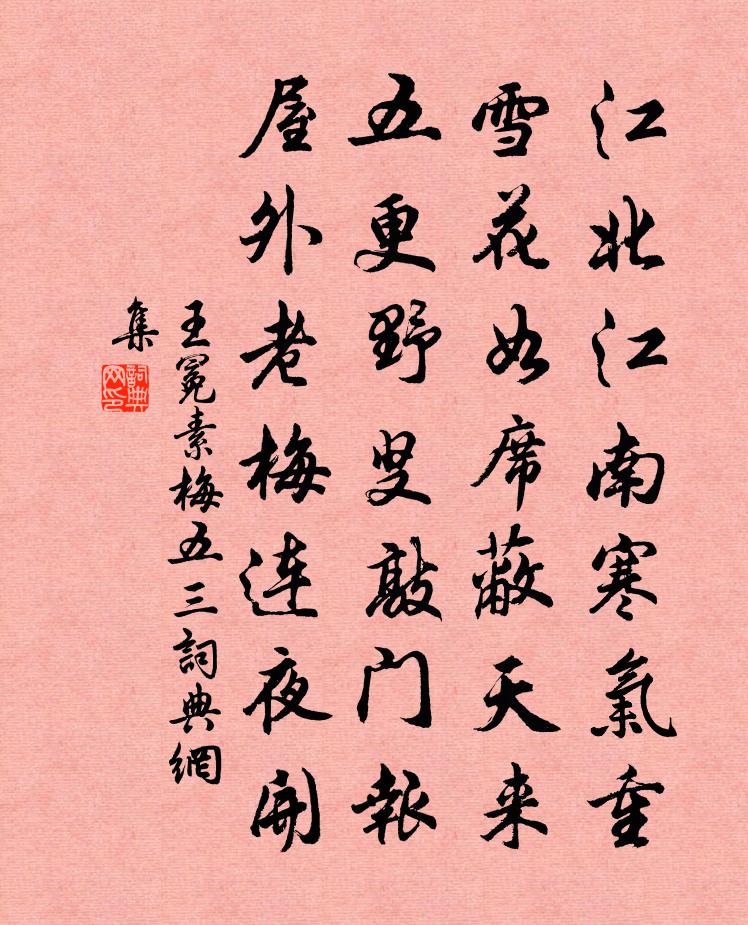 江北江南寒氣重
雪花如席蔽天来
五更野叟敲门報
屋外老梅连夜開
王冕素梅五三詞典網
集
詞典网印